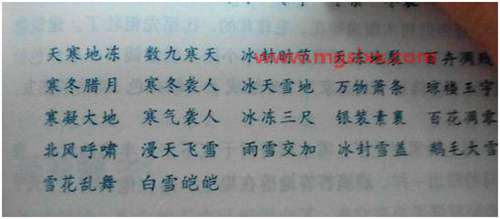 天寒地冻 数九寒天 百卉凋残
寒冬腊月 寒冬袭人 冰天雪地 万物萧条 琼楼玉宇
寒凝大地 寒气袭人 冰冻三尺 银装素裹 百花凋零
北风呼啸 漫天飞雪 雨雪交加 冰封雪盖 鹅毛大雪
雪花乱舞 白雪皑皑